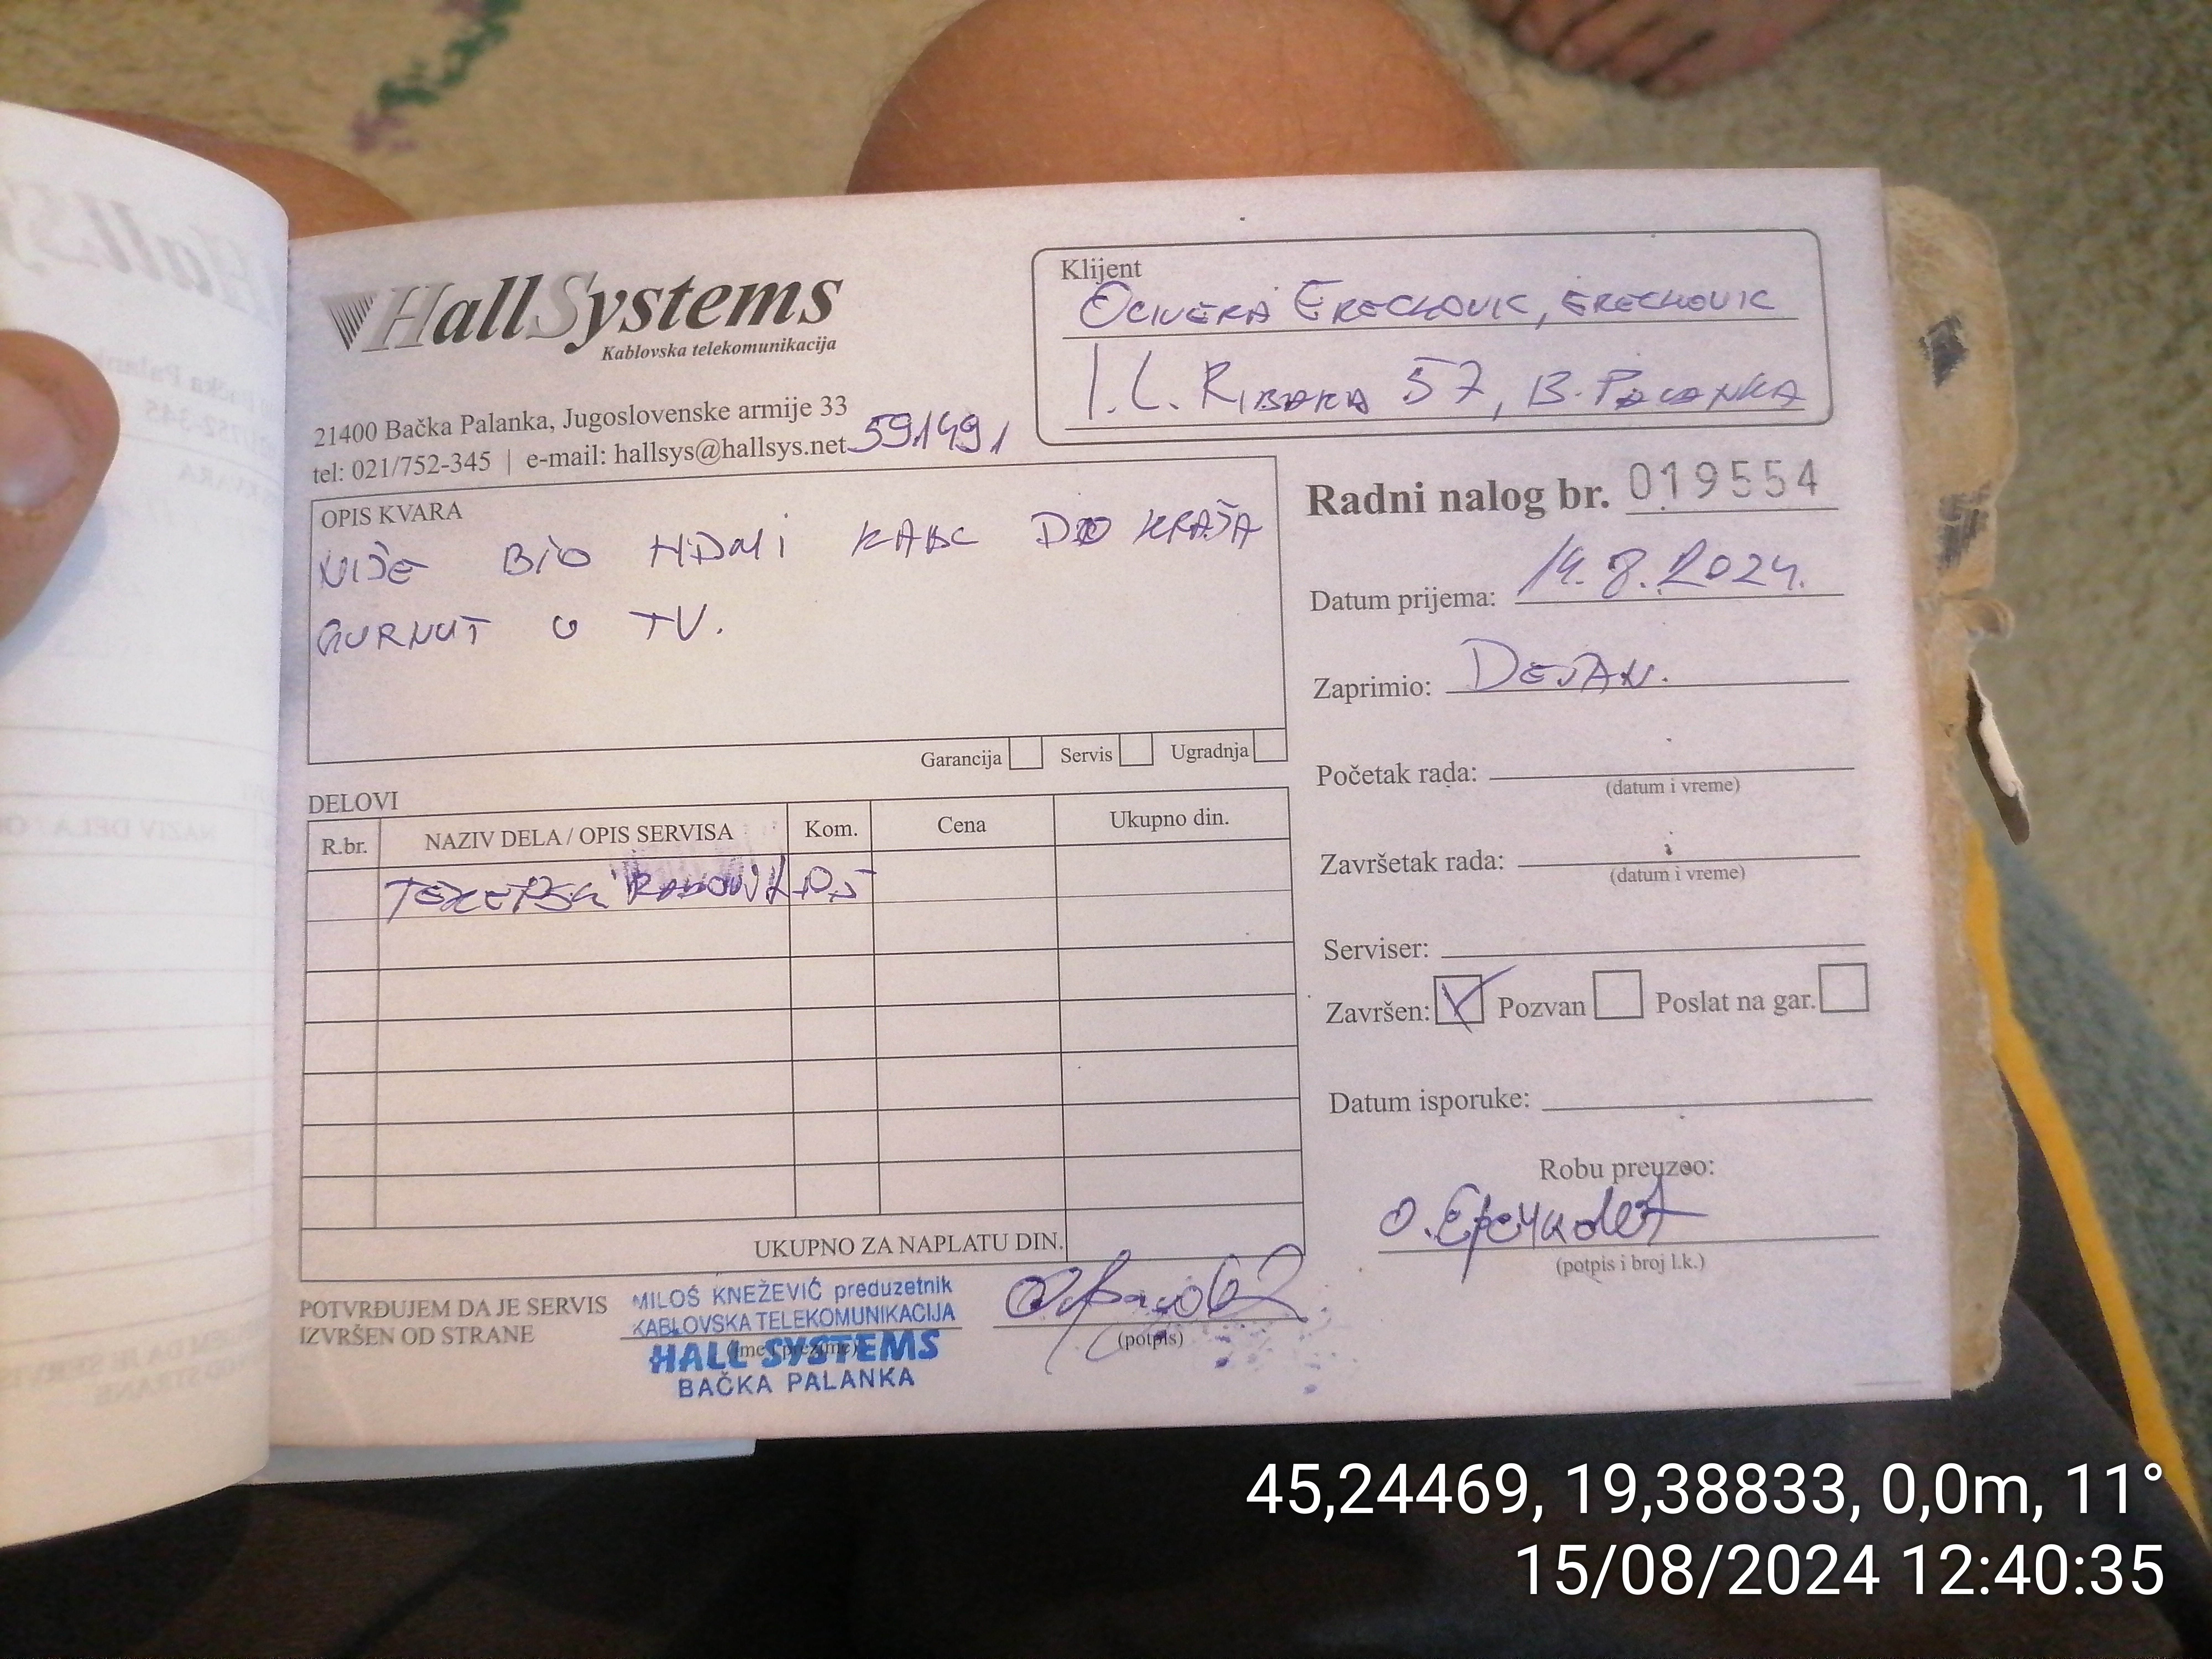 HallSystems
Kablovska telekomunikacija
21400 Bačka Palanka, Jugoslovenske armije 33
tel: 021/752-345 | e-mail: hallsys@hallsys.net 591491
Klijent
OLIVERA ERECKOVIC, ERECKOVIC
I. L. RIBARA 57, B. PALANKA
OPIS KVARA
NIJE BIO HDMI KABL DO KRAJA
GURNUT U TV.
Garancija Servis Ugradnja
Radni nalog br. 019554
Datum prijema: 14.8.2024.
Zaprimio: DEJAN.
Početak rada:
(datum i vreme)
Završetak rada:
(datum i vreme)
Serviser:
Završen: Pozvan Poslat na gar.
Datum isporuke:
Robu preuzeo:
(potpis i broj l.k.)
DELOVI
R.br. NAZIV DELA / OPIS SERVISA Kom. Cena Ukupno din.
UKUPNO ZA NAPLATU DIN.
POTVRĐUJEM DA JE SERVIS
IZVRŠEN OD STRANE
MILOŠ KNEŽEVIĆ preduzetnik
KABLOVSKA TELEKOMUNIKACIJA
HALL SYSTEMS
(ime i prezime)
BAČKA PALANKA
(potpis)
45,24469, 19,38833, 0,0m, 11°
15/08/2024 12:40:35